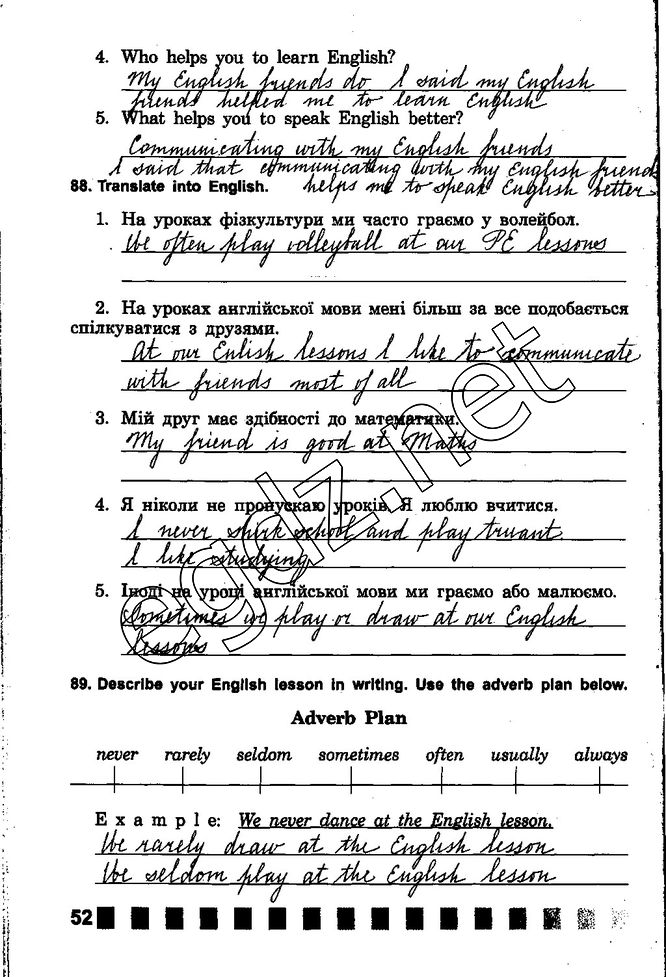 4. Who helps you to learn English?
My English friends do I said my English
friends helped me to learn English
5. What helps you to speak English better?
Communicating with my English friends
I said that communicating with my English friends
88. Translate into English. helps me to speak English better
1. На уроках фізкультури ми часто граємо у волейбол.
We often play volleyball at our PE lessones
2. На уроках англійської мови мені більш за все подобається
спілкуватися з друзями.
At our Enlish lessons I like to communicate
with friends most of all
3. Мій друг має здібності до математики.
My friend is good at Maths
4. Я ніколи не пропускаю уроків. Я люблю вчитися.
I never shirk school and play truant
I like studying
5. Іноді на уроці англійської мови ми граємо або малюємо.
Sometimes we play or draw at our English
lessons
89. Describe your English lesson in writing. Use the adverb plan below.
Adverb Plan
never rarely seldom sometimes often usually always
Example: We never dance at the English lesson.
We rarely draw at the English lesson
We seldom play at the English lesson
52
egdz.net